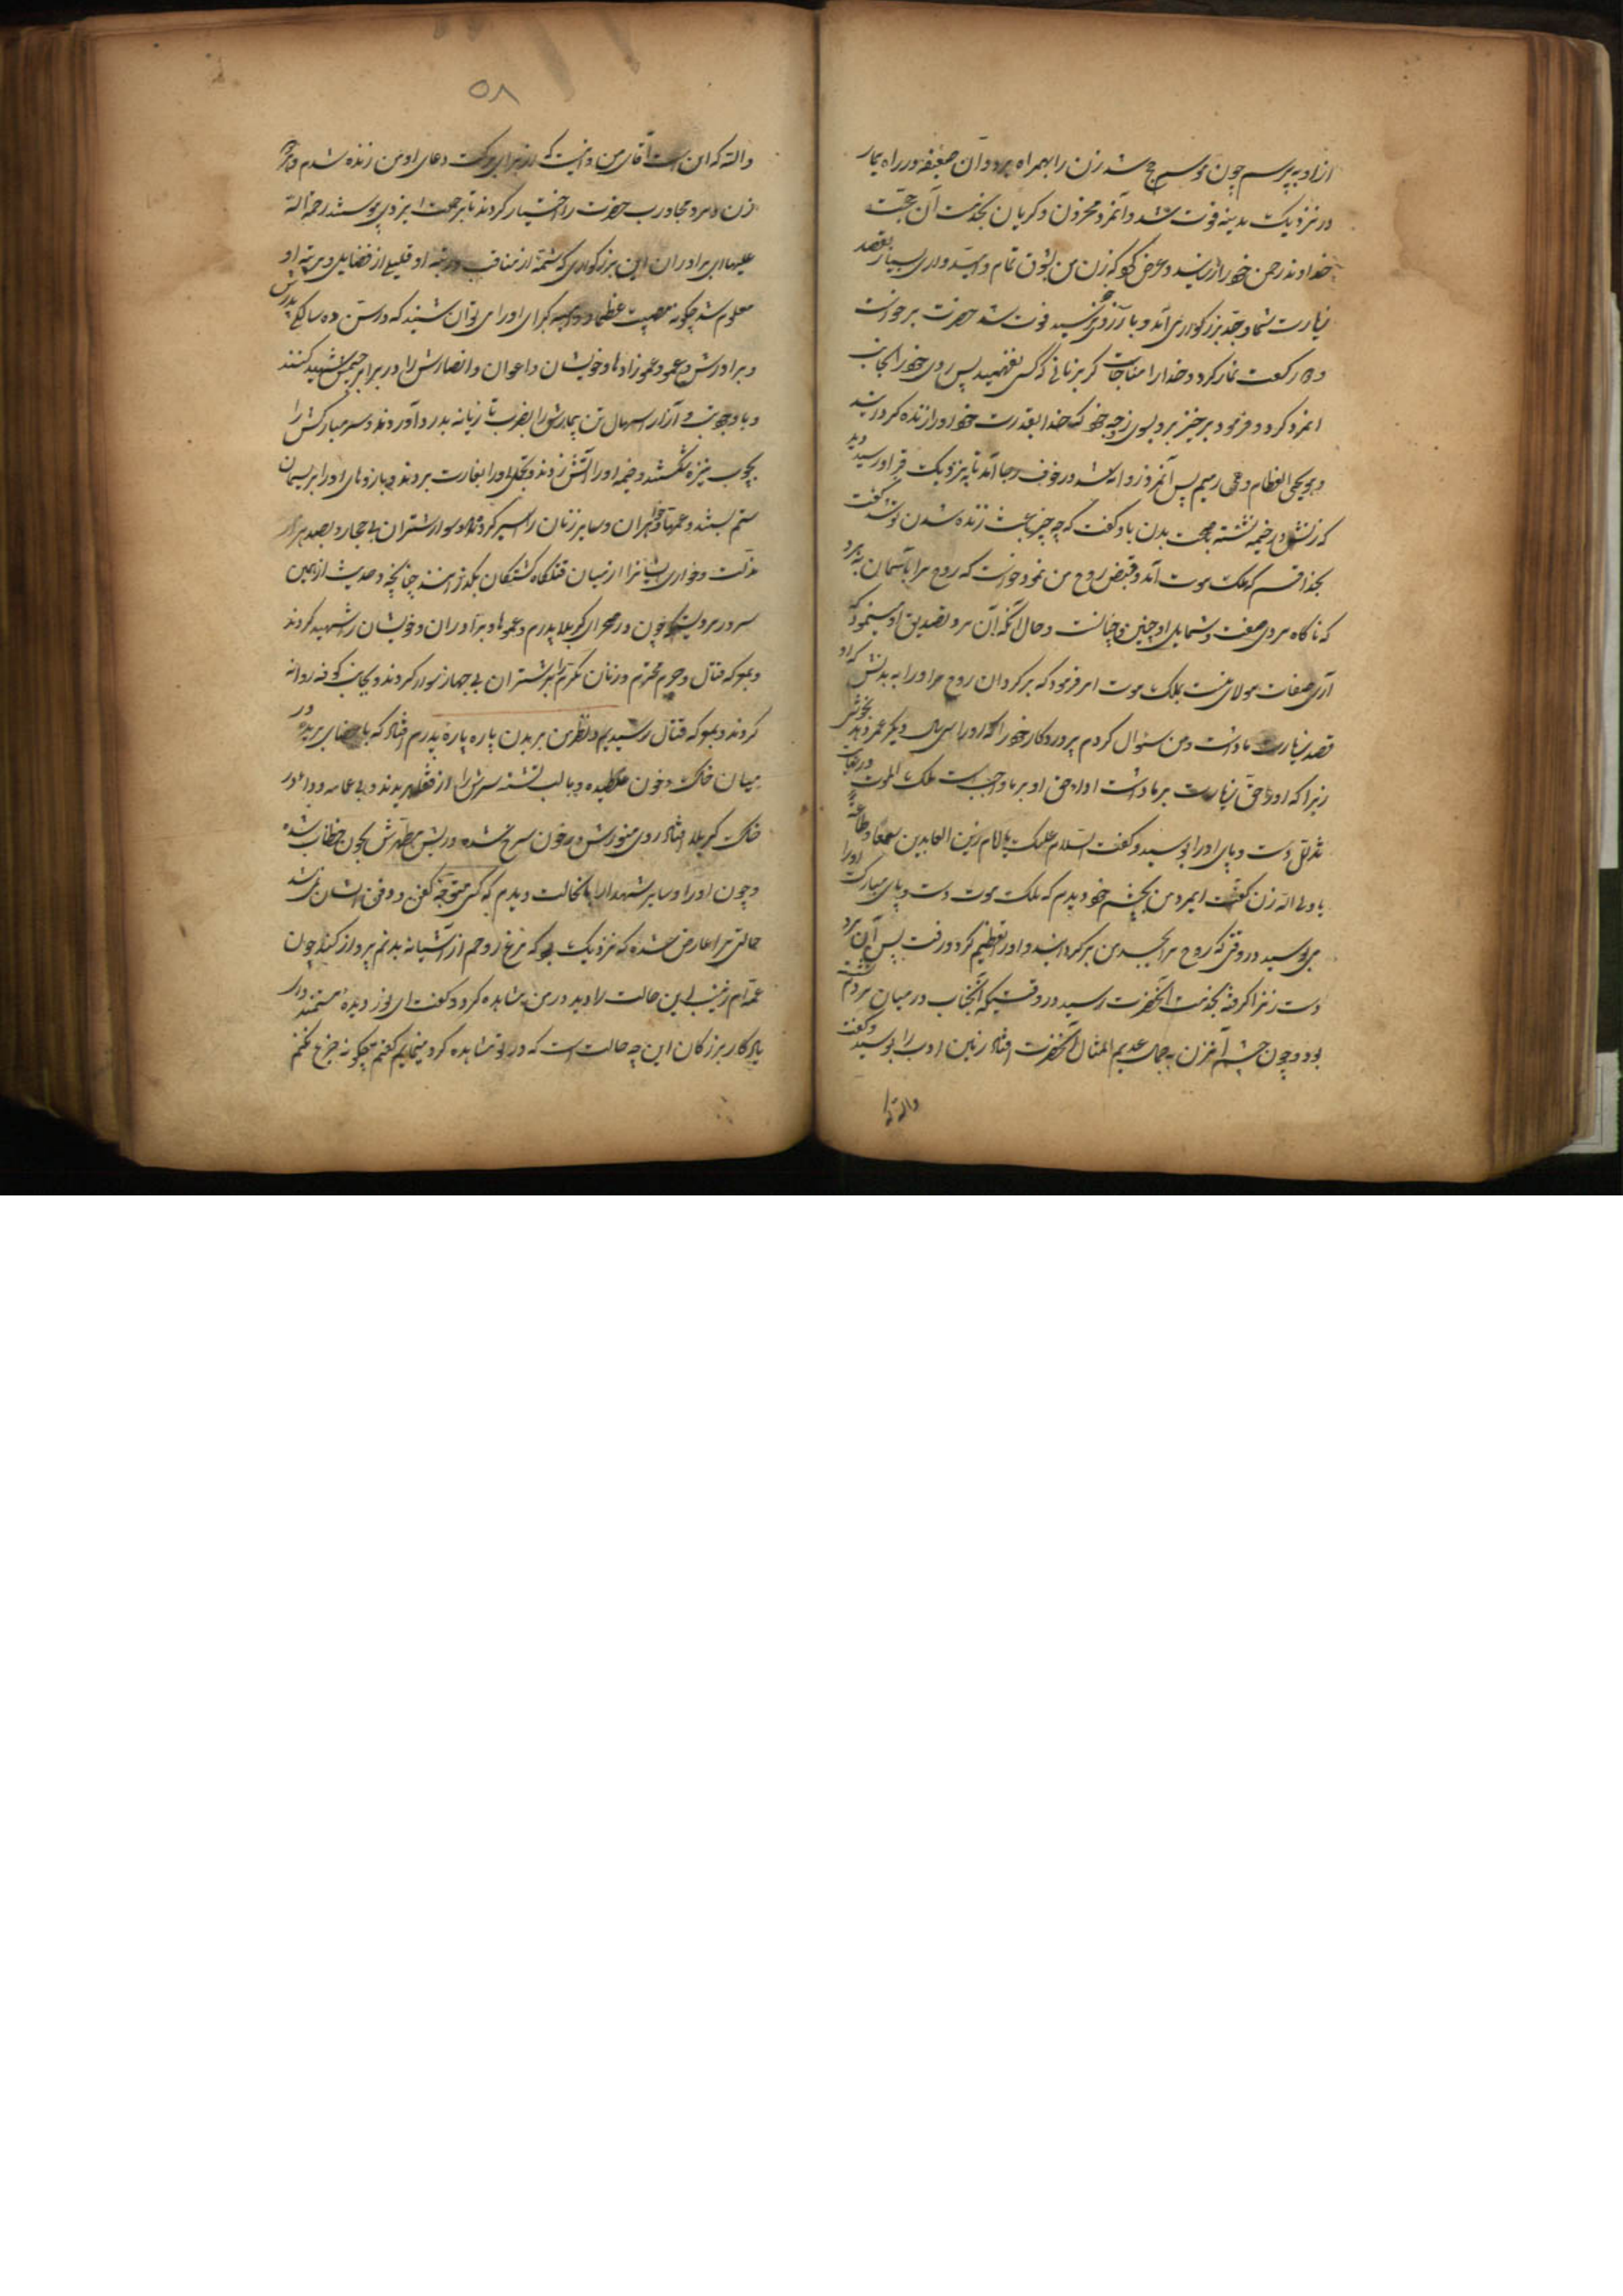 از او بپرسم چون موسم حج شد زن را بهمراه برد و آن ضعیفه در راه بیمار
در نزدیک مدینه فوت شد و آنمرد محزون و گریان بخدمت آن حجت
خداوند رحمن خود را رسانید و عرض کرد که زن من بشوق تمام و امیدواری بسیار بقصد
زیارت شما و جد بزرگواری آمد و بآرزو نرسید فوت شد حضرت برخواست
و دو رکعت نماز کرد و خدا را مناجات کرد بزبانی که کسی نفهمید پس روی خود را بجانب
انمرد کرد و فرمود برخیز برو بسوی زوجه خود که خدا بقدرت خود او را زنده گردانید
و هو یحیی العظام و هی رمیم پس آنمرد روانه شد در خوف و رجا آمد تا بنزدیک او رسید دید
که زنش در خیمه نشسته بصحت بدن باو گفت که چه چیز باعث زنده شدن تو شد گفت
بخدا قسم که ملک موت آمد و قبض روح من نمود و خواست که روح مرا بآسمان برد
که ناگاه مردی صفت و شمایل او چنین و چنانست و حال آنکه آن مرد تصدیق او مینمود که
آری صفات مولای منست بملک موت امر فرمود که برگردان روح او را به بدنش که او
قصد زیارت ما داشت و من سئوال کردم پروردگار خود را که او را سی سال دیگر عمر دهد بخوشی
زیرا که او را حق زیارت بر ما داشت ادای حق او بر ما واجب است ملک الموت در نهایت
تذلل دست و پای او را بوسید و گفت السلام علیک یا امام زین العابدین سمعا و طاعة
یا ولی الله زن گفت ایمرد من بچشم خود دیدم که ملک موت دست و پای مبارک او را
می بوسید در وقتی که روح مرا بجسد من برگردانید و او را تعظیم کرد و رفت پس آن مرد
دست زنرا گرفته بخدمت آنحضرت رسید در وقتیکه آنجناب در میان مردم
بود و چون چشم آنزن بجمال عدیم المثال آنحضرت افتاد زمین ادب را بوسید و گفت
والله که
۵۸
والله که این است آقای من و اینست که از برای برکت دعای او من زنده شدم
زن و مرد مجاورت حضرت را اختیار کردند تا برحمت ایزدی پیوستند رحمة الله
علیهما ای برادران این بزرگواری که شمه از مناقب و رتبه او قلیلی از فضایل و مرتبه او
معلوم شد چگونه مصیبت عظما و کبرای او را می توان شنید که در سن ده سالگی پدرش
و برادرش و عمو و عموزادها و خویشان و اعوان و انصارش را در برابر چشمش شهید کنند
و با وجود تب و آزار اسهال تن بیمارش را بضرب تازیانه بدرد آوردند و سر مبارکش را
بچوب نیزه شکستند و خیمه او را آتش زدند و او را بغارت بردند و بازوهای او را بریسمان
ستم بستند و عمها و خواهران و سایر زنان را اسیر کردند و سوار شتران بی جهاز و بصد هزار
مذلت و خواری ایشانرا از میان قتلگاه کشتگان بگذرانند چنانچه در حدیث از همین
سرور مرویست که چون در صحرای کربلا پدرم و عموها و برادران و خویشان را شهید کردند
و حرم محترم و زنان مکرم را بر شتران بی جهاز سوار کردند و بجانب کوفه روانه
کردند و بمعرکه قتال رسیدیم و نظر من بر بدن پاره پاره پدرم افتاد که با اعضای بریده در
میان خاک و خون غلطیده و با لب تشنه سرش را از قفا بریدند و بی عمامه و ردا در
خاک کربلا افتاد روی منورش در خون سرخ شده و ریش مطهرش بخون خضاب شده
و چون او را و سایر شهدا را بآنحالت دیدم که کسی متوجه کفن و دفن ایشان نمی شد
حالتی مرا عارض شده که نزدیک بود که مرغ روحم از آشیانه بدنم پرواز کند چون
عمه ام زینب این حالت را در من مشاهده کرد و گفت ای نور دیده مستمند و ای
یادگار بزرگان این چه حالت است که در تو مشاهده مینمایم گفتم چگونه جزع نکنم